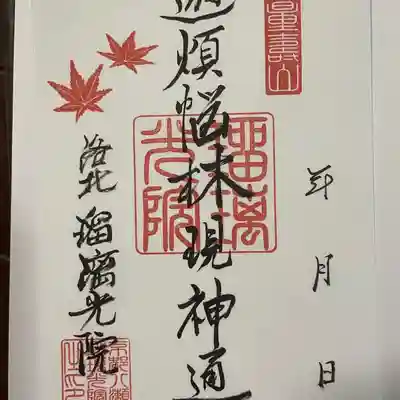 無量壽山
年 月 日
遊煩悩林現神通
瑠璃光院
洛北 瑠璃光院